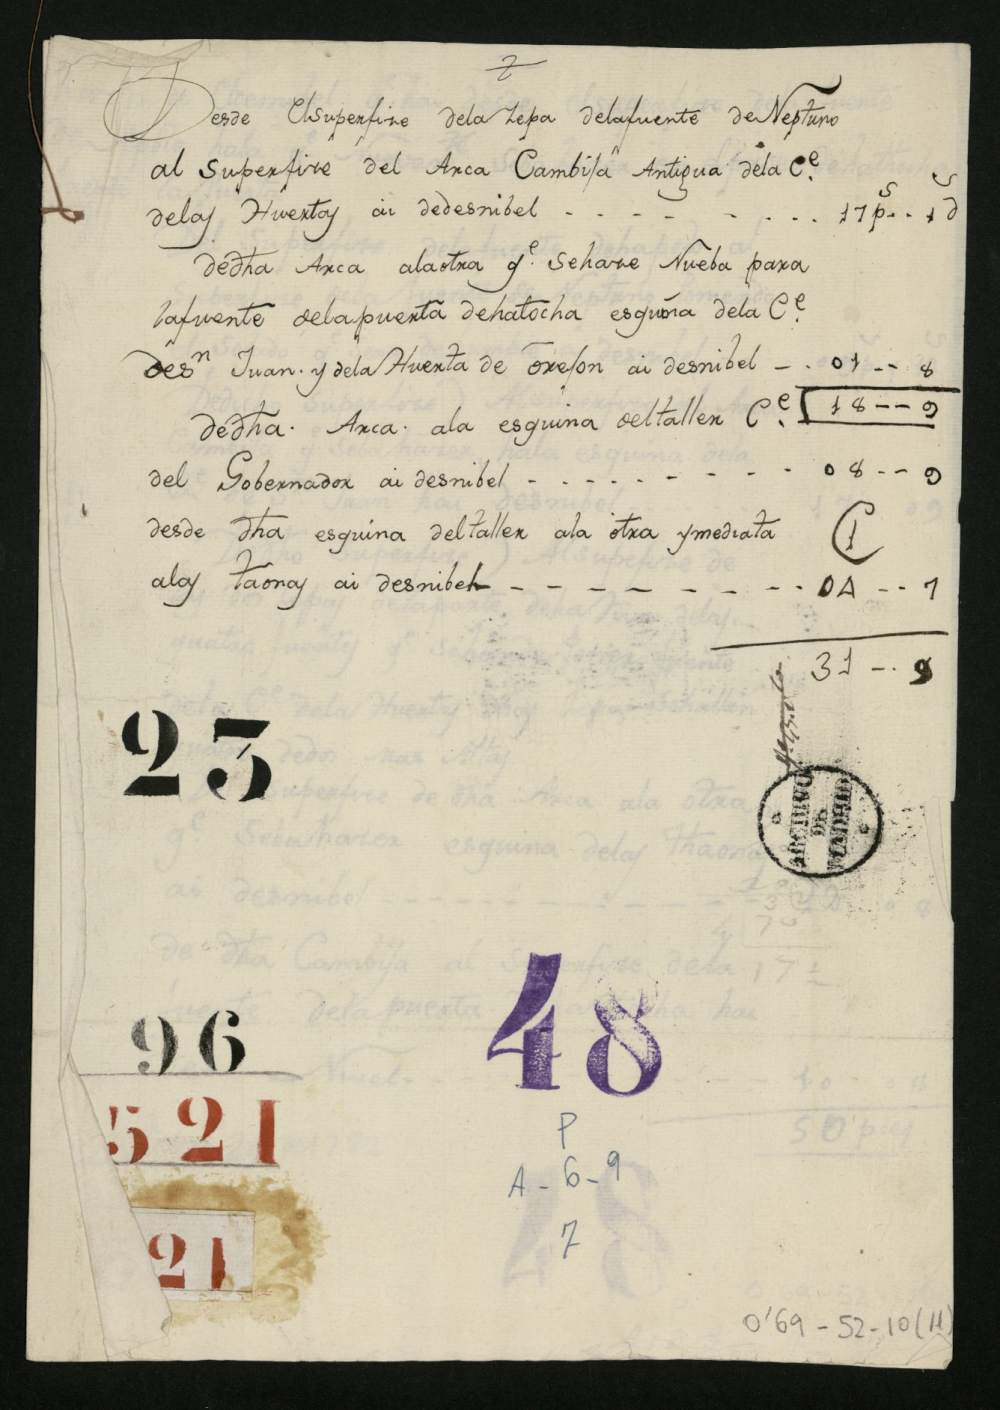 2
Desde Elsuperfize dela zepa delafuente de Neptuno
al superfize del Arca Cambija Antigua dela C.e
delas Huertas ai dedesnibel - - - - - - - 17 ps - - 1 ds
dedha Arca alaotra q.e sehaze Nueba para
lafuente delapuerta dehatocha esquina dela C.e
desn Juan. y dela Huerta de orejon ai desnibel - - 01 - - 8
18 - - 9
dedha. Arca. ala esquina deltaller C.e
del Gobernador ai desnibel - - - - - - - 08 - - 9
desde dha esquina deltaller ala otra ymediata
1
alas taonas ai desnibel - - - - - - - - 04 - - 7
31 - - 9
23
ARCHIVO
DE
MADRID
96
48
521
P
A - 6 - 9
7
21
0'69 - 52 - 10 (11)